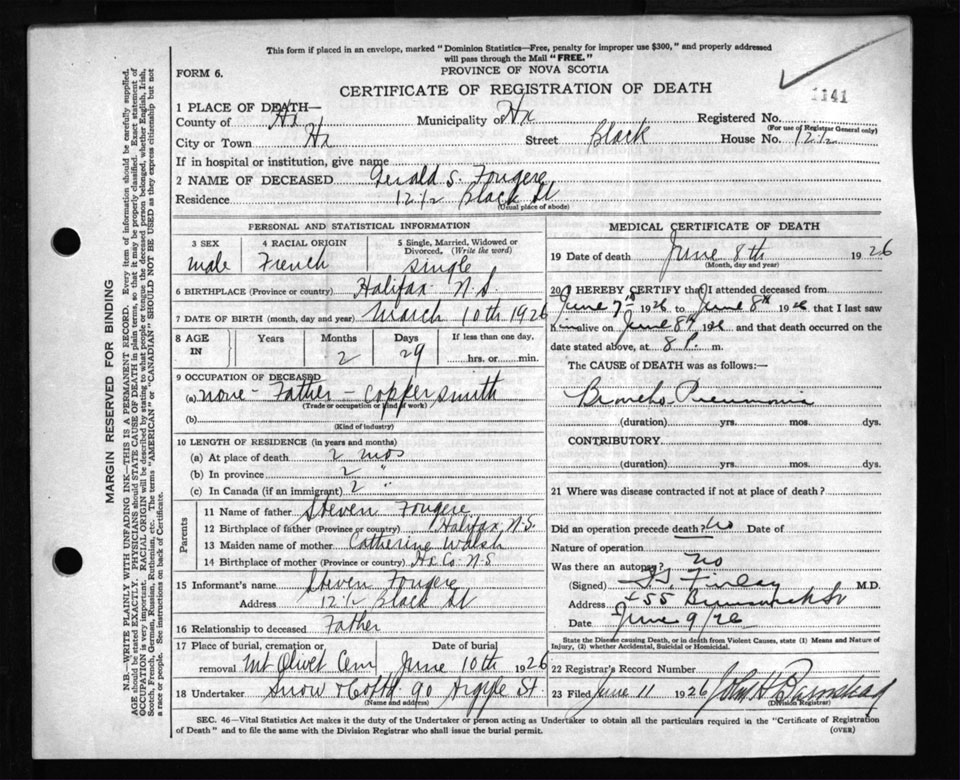 This form if placed in an envelope, marked "Dominion Statistics—Free, penalty for improper use $300," and properly addressed
will pass through the Mail "FREE."
FORM 6.
PROVINCE OF NOVA SCOTIA
CERTIFICATE OF REGISTRATION OF DEATH
1141
1 PLACE OF DEATH—
County of Hx Municipality of Hx Registered No.
(For use of Registrar General only)
City or Town Hx Street Black House No. 12½
If in hospital or institution, give name
2 NAME OF DECEASED Gerald S. Fougere
Residence 12½ Black St
(Usual place of abode)
PERSONAL AND STATISTICAL INFORMATION
3 SEX
male
4 RACIAL ORIGIN
French
5 Single, Married, Widowed or
Divorced. (Write the word)
single
6 BIRTHPLACE (Province or country) Halifax N.S.
7 DATE OF BIRTH (month, day and year) March 10th 1926
8 AGE IN
Years Months Days If less than one day,
2 29 hrs. or min.
9 OCCUPATION OF DECEASED
(a) none - Father - coppersmith
(Trade or occupation or kind of work)
(b)
(Kind of industry)
10 LENGTH OF RESIDENCE (in years and months)
(a) At place of death 2 mos
(b) In province 2 "
(c) In Canada (if an immigrant) 2 "
Parents
11 Name of father Steven Fougere
12 Birthplace of father (Province or country) Halifax, N.S.
13 Maiden name of mother Catherine Walsh
14 Birthplace of mother (Province or country) Hx Co. N.S
15 Informant's name Steven Fougere
Address 12½ Black St
16 Relationship to deceased Father
17 Place of burial, cremation or Date of burial
removal Mt Olivet Cem June 10th 1926
18 Undertaker Snow & Co Ltd. 90 Argyle St.
(Name and address)
MEDICAL CERTIFICATE OF DEATH
19 Date of death June 8th 1926
(Month, day and year)
20 I HEREBY CERTIFY that I attended deceased from
June 7th 1926 to June 8th 1926 that I last saw
him alive on June 8th 1926 and that death occurred on the
date stated above, at 8 P. m.
The CAUSE OF DEATH was as follows:—
Broncho Pneumonia
(duration) yrs. mos. dys.
CONTRIBUTORY
(duration) yrs. mos. dys.
21 Where was disease contracted if not at place of death?
Did an operation precede death? No Date of
Nature of operation
Was there an autopsy? no
(Signed) Finlay M.D.
Address 55 Brunswick St
Date June 9/26
State the Disease causing Death, or in death from Violent Causes, state (1) Means and Nature of
Injury, (2) whether Accidental, Suicidal or Homicidal.
22 Registrar's Record Number
23 Filed June 11 1926 John H Barnstead
(Division Registrar)
SEC. 46—Vital Statistics Act makes it the duty of the Undertaker or person acting as Undertaker to obtain all the particulars required in the "Certificate of Registration
of Death" and to file the same with the Division Registrar who shall issue the burial permit.
(OVER)
MARGIN RESERVED FOR BINDING
N.B.—WRITE PLAINLY WITH UNFADING INK—THIS IS A PERMANENT RECORD. Every item of information should be carefully supplied.
AGE should be stated EXACTLY. PHYSICIANS should STATE CAUSE OF DEATH in plain terms, so that it may be properly classified. Exact statement of
OCCUPATION is very important. RACIAL ORIGIN will be described by stating to what people or tongue the deceased person belonged, whether English, Irish,
Scotch, French, German, Russian, Ruthenian, etc. The terms "AMERICAN" or "CANADIAN" SHOULD NOT BE USED as they express citizenship but not
a race or people. See instructions on back of Certificate.